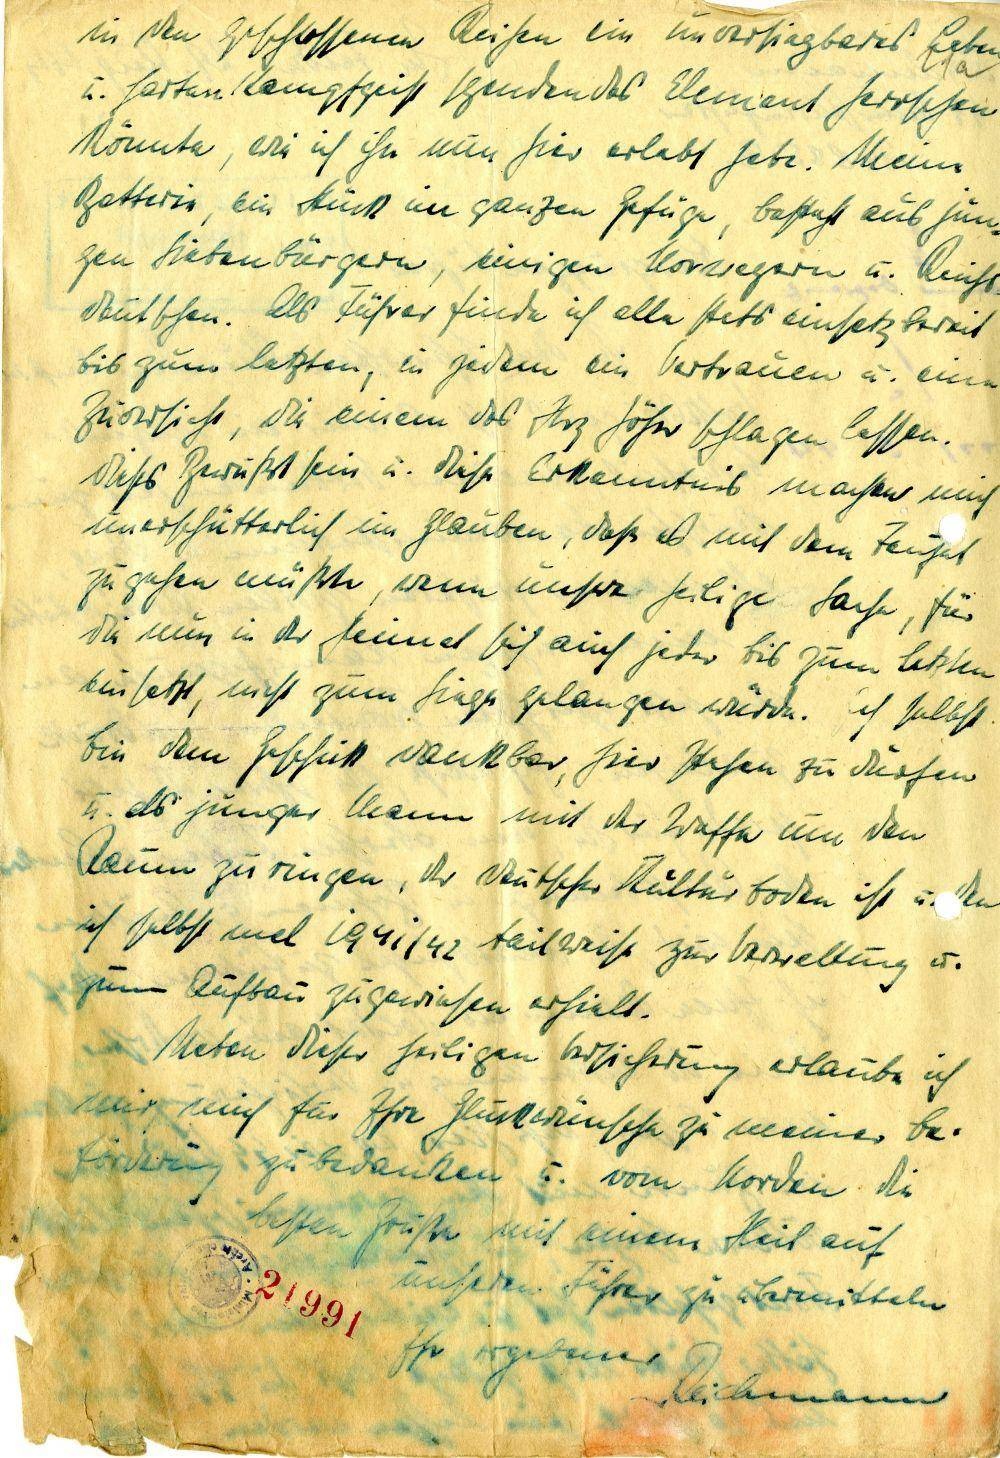 in den geschlossenen Reihen ein unversiegbares Leben
u. harten Kampfgeist spendendes Element herrschen
könnte, wie ich ihn nun hier erlebt habe. Meine
Batterie, ein Stück im ganzen Gefüge, besteht aus jun-
gen Siebenbürgern, einigen Norwegern u. Reichs-
deutschen. Als Führer finde ich alle stets einsatzbereit
bis zum letzten, in jedem ein Vertrauen u. eine
Zuversicht, die einem das Herz höher schlagen lassen.
Dieses Bewußtsein u. diese Erkenntnis machen mich
unerschütterlich im Glauben, daß es mit dem Teufel
zugehen müßte, wenn unsere heilige Sache, für
die nun in der Heimat sich auch jeder bis zum letzten
einsetzt, nicht zum Siege gelangen würde. Ich selbst
bin dem Geschick dankbar, hier stehen zu dürfen
u. als junger Mann mit der Waffe um den
Raum zu ringen, der deutscher Kulturboden ist u. den
ich selbst mal 1941/42 teilweise zur Verwaltung u.
zum Aufbau zugewiesen erhielt.
Neben dieser heiligen Versicherung erlaube ich
mir, mich für Ihre Glückwünsche zu meiner Be-
förderung zu bedanken u. vom Norden die
besten Grüße mit einem Heil auf
unseren Führer zu übermitteln
Ihr ergebener
Reichmann
21991